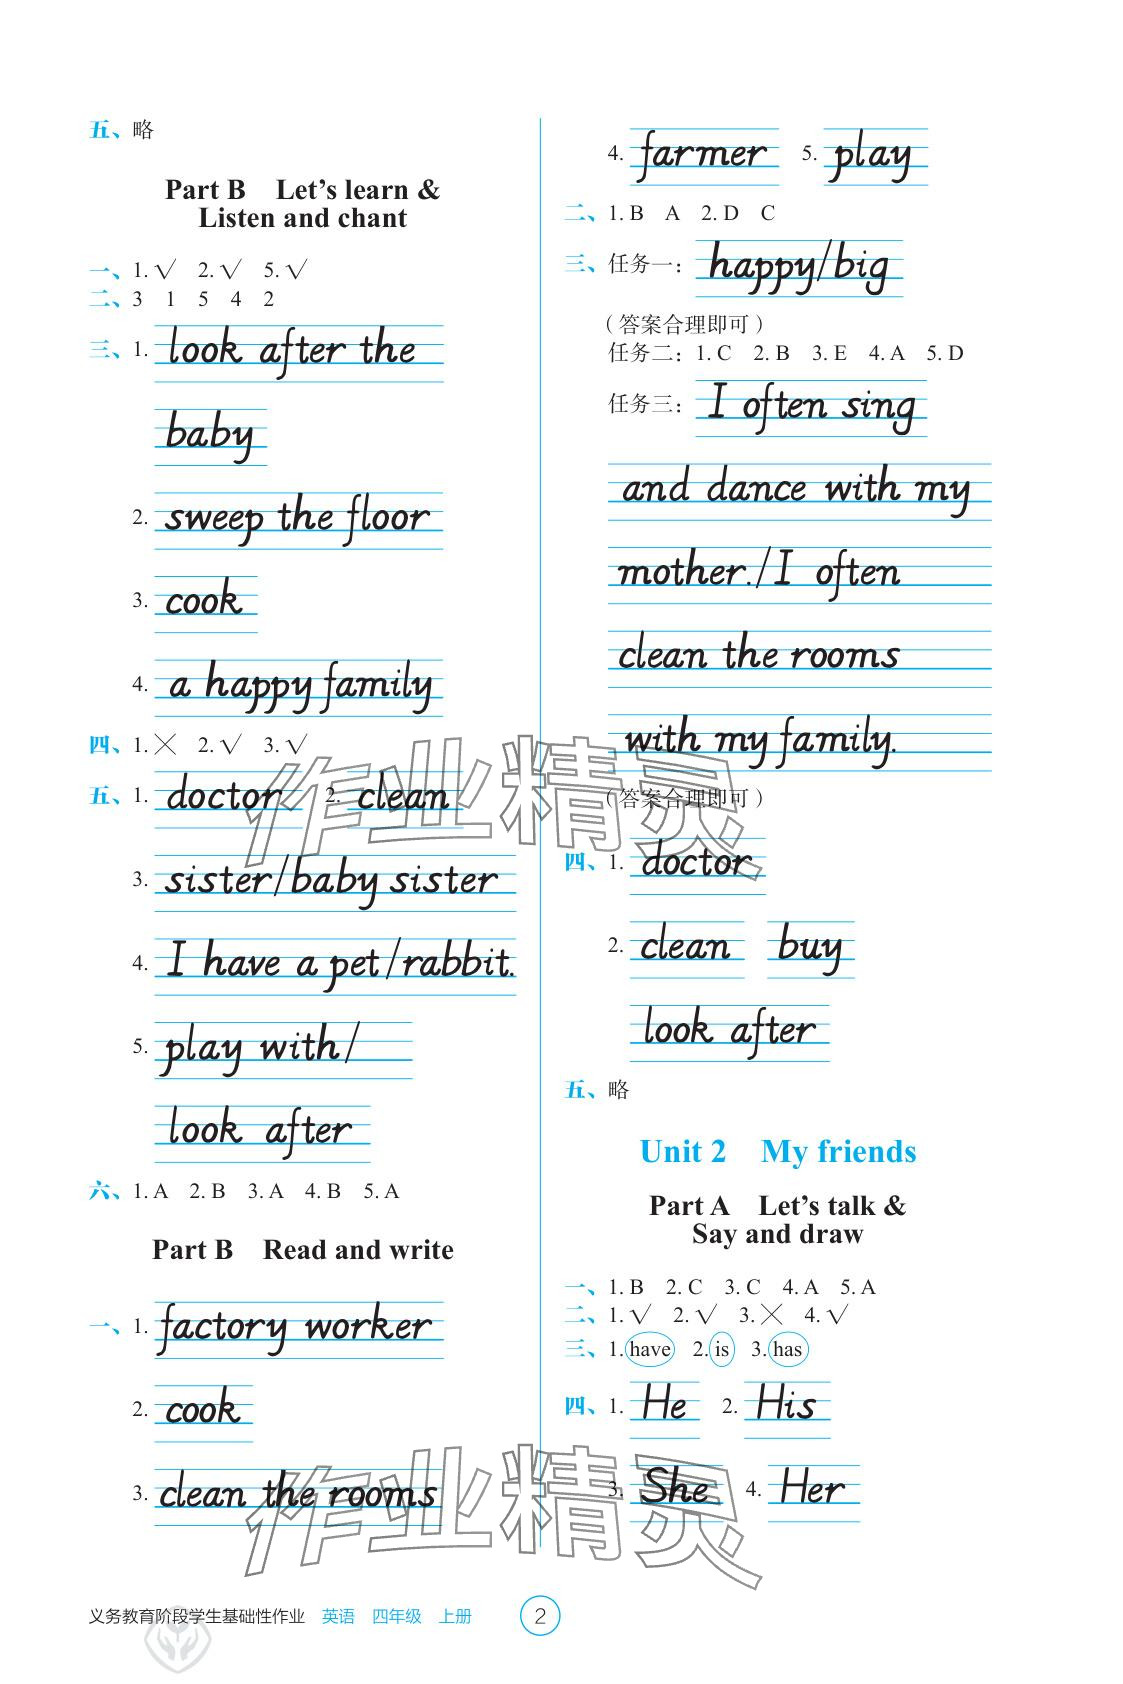 五、略
Part B　Let's learn &
Listen and chant
一、1. √　2. √　5. √
二、3　1　5　4　2
三、1. look after the
baby
2. sweep the floor
3. cook
4. a happy family
四、1. ×　2. √　3. √
五、1. doctor　2. clean
3. sister/baby sister
4. I have a pet/rabbit.
5. play with/
look after
六、1. A　2. B　3. A　4. B　5. A
Part B　Read and write
一、1. factory worker
2. cook
3. clean the rooms
4. farmer　5. play
二、1. B　A　2. D　C
三、任务一：happy/big
（答案合理即可）
任务二：1. C　2. B　3. E　4. A　5. D
任务三：I often sing
and dance with my
mother./I often
clean the rooms
with my family.
（答案合理即可）
四、1. doctor
2. clean　buy
look after
五、略
Unit 2　My friends
Part A　Let's talk &
Say and draw
一、1. B　2. C　3. C　4. A　5. A
二、1. √　2. √　3. ×　4. √
三、1. have　2. is　3. has
四、1. He　2. His
3. She　4. Her
作业精灵
作业精灵
义务教育阶段学生基础性作业　英语　四年级　上册　2